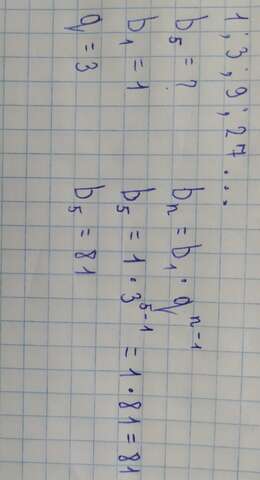 1; 3; 9; 27 ...
b₅ = ?
b₁ = 1
q = 3
bₙ = b₁ · qⁿ⁻¹
b₅ = 1 · 3⁵⁻¹ = 1 · 81 = 81
b₅ = 81